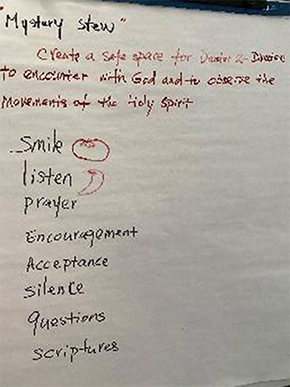 "Mystery Stew"
Create a safe space for Desire 2 Discern
to encounter with God and to observe the
Movements of the Holy Spirit
Smile
listen
prayer
Encouragement
Acceptance
Silence
Questions
Scriptures